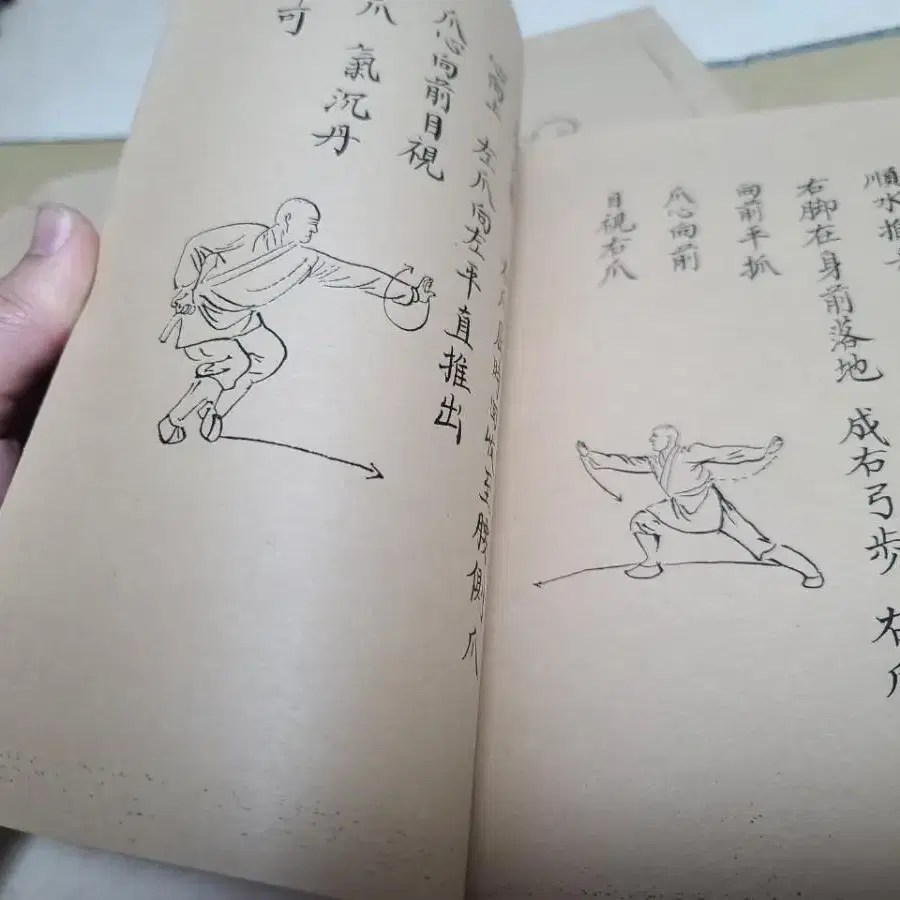 順水推
右脚在身前落地 成右弓步 右爪
向前平抓
爪心向前
目視右爪
至腰側 爪
心向上 左爪向左平直推出
爪心向前目視
爪 氣沉丹
可